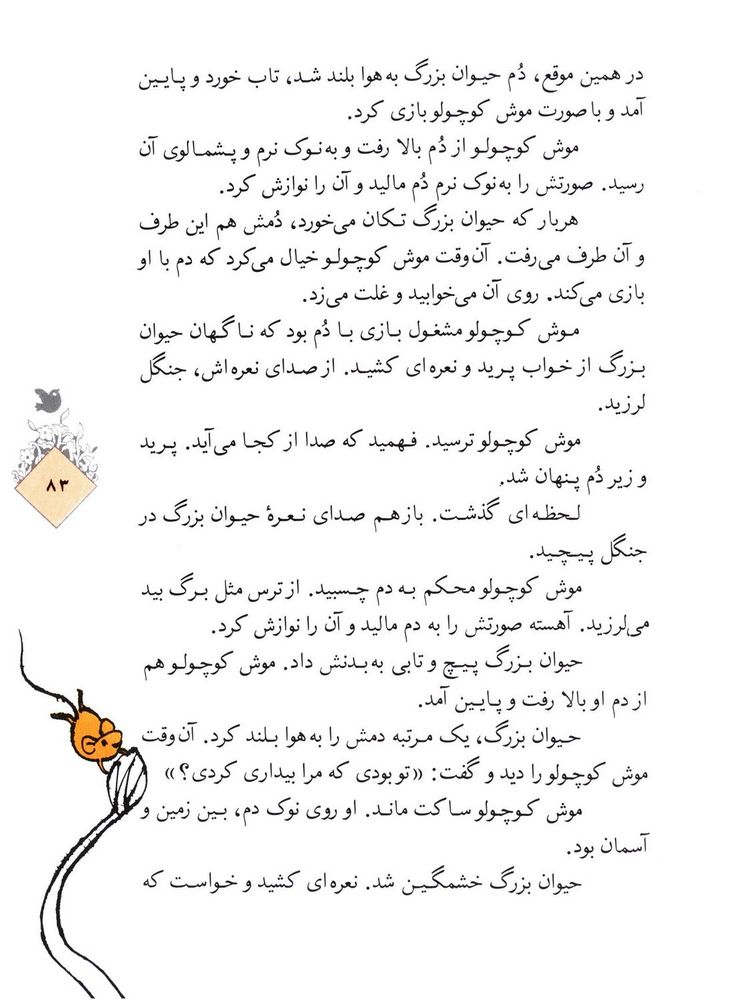 در همین موقع، دُم حیوان بزرگ به‌هوا بلند شد، تاب خورد و پایین
آمد و با صورت موش کوچولو بازی کرد.
موش کوچولو از دُم بالا رفت و به‌نوک نرم و پشمالوی آن
رسید. صورتش را به‌نوک نرم دُم مالید و آن را نوازش کرد.
هربار که حیوان بزرگ تکان می‌خورد، دُمش هم این طرف
و آن طرف می‌رفت. آن‌وقت موش کوچولو خیال می‌کرد که دم با او
بازی می‌کند. روی آن می‌خوابید و غلت می‌زد.
موش کوچولو مشغول بازی با دُم بود که ناگهان حیوان
بزرگ از خواب پرید و نعره‌ای کشید. از صدای نعره‌اش، جنگل
لرزید.
موش کوچولو ترسید. فهمید که صدا از کجا می‌آید. پرید
و زیر دُم پنهان شد.
۸۳
لحظه‌ای گذشت. بازهم صدای نعرهٔ حیوان بزرگ در
جنگل پیچید.
موش کوچولو محکم به دم چسبید. از ترس مثل برگ بید
می‌لرزید. آهسته صورتش را به دم مالید و آن را نوازش کرد.
حیوان بزرگ پیچ و تابی به‌بدنش داد. موش کوچولو هم
از دم او بالا رفت و پایین آمد.
حیوان بزرگ، یک مرتبه دمش را به‌هوا بلند کرد. آن‌وقت
موش کوچولو را دید و گفت: «تو بودی که مرا بیداری کردی؟»
موش کوچولو ساکت ماند. او روی نوک دم، بین زمین و
آسمان بود.
حیوان بزرگ خشمگین شد. نعره‌ای کشید و خواست که